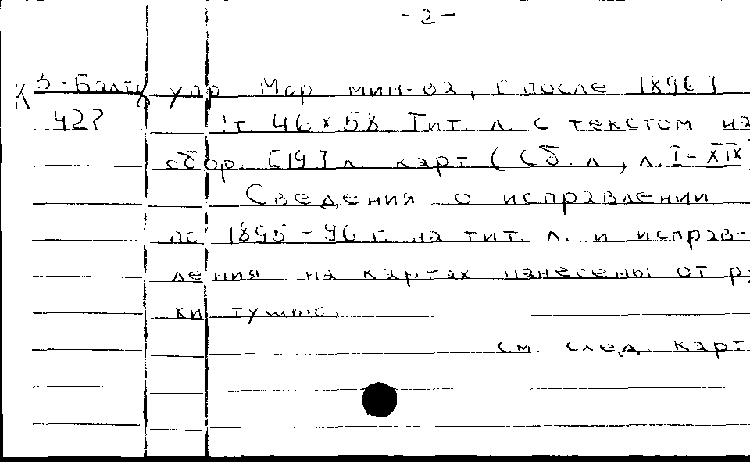 - 2 -
К 3-Балт упр. Мор. мин-ва, [после 1896]
427 1т. 46×58 Тит. л. с текстом на
обор. [19] л. карт (Сб. л., л. I-XIX
Сведения о исправлении
по 1895-96 г. на тит. л. и исправ-
ления на картах нанесены от ру
ки тушью.
см. след. карт